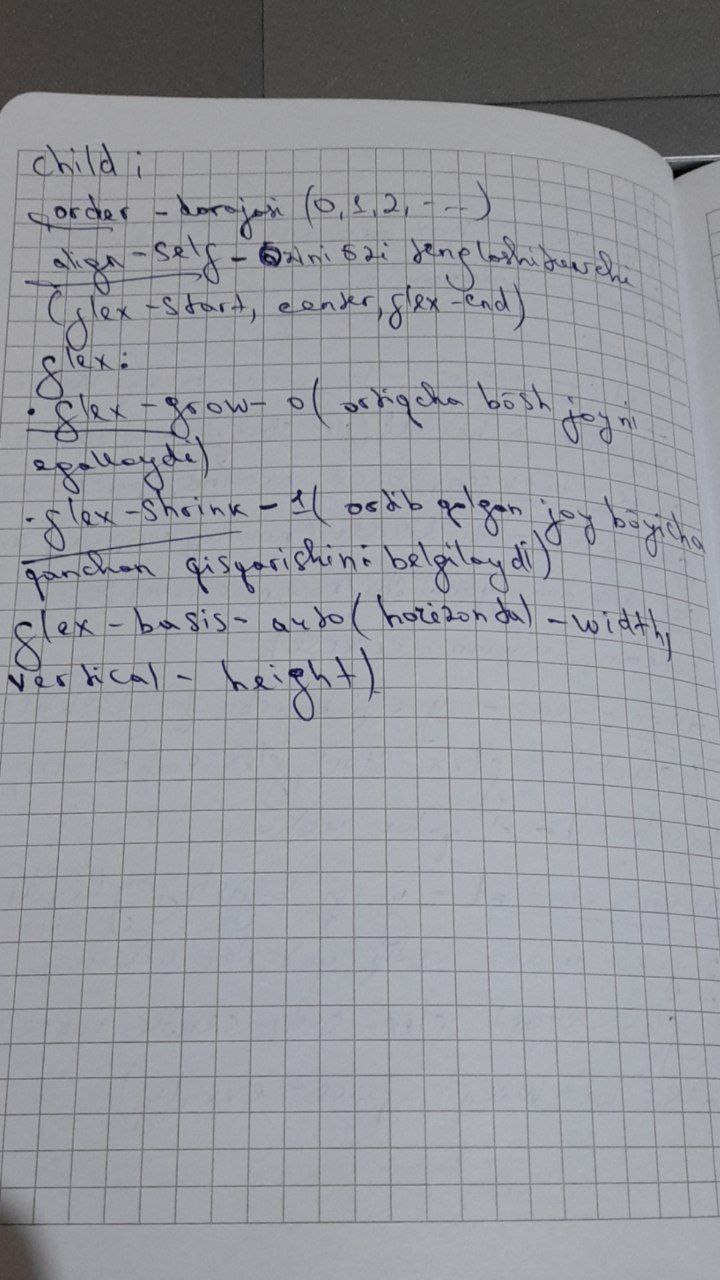 child :
order - darajasi (0, 1, 2, - - -)
align-self - õzini õzi tenglashtiruvchi
(flex-start, center, flex-end)
flex:
• flex-grow - 0 ( ortiqcha bõsh joyni
egallaydi)
• flex-shrink - 1 ( ortib qolgan joy bõyicha
qanchan qisqarishini belgilaydi)
flex-basis - auto ( horizontal - width,
vertical - height)